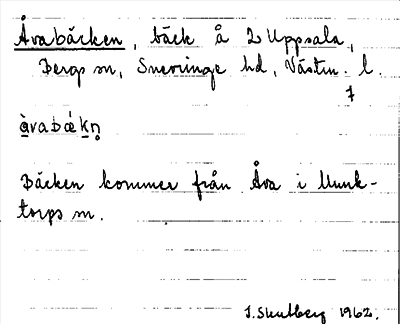 Åvabäcken, bäck å 2 Uppsala,
Bergs sn, Snevringe hd, Västm. l.
7
àvabǽkn̥
Bäcken kommer från Åva i Munk-
torps sn.
1962.